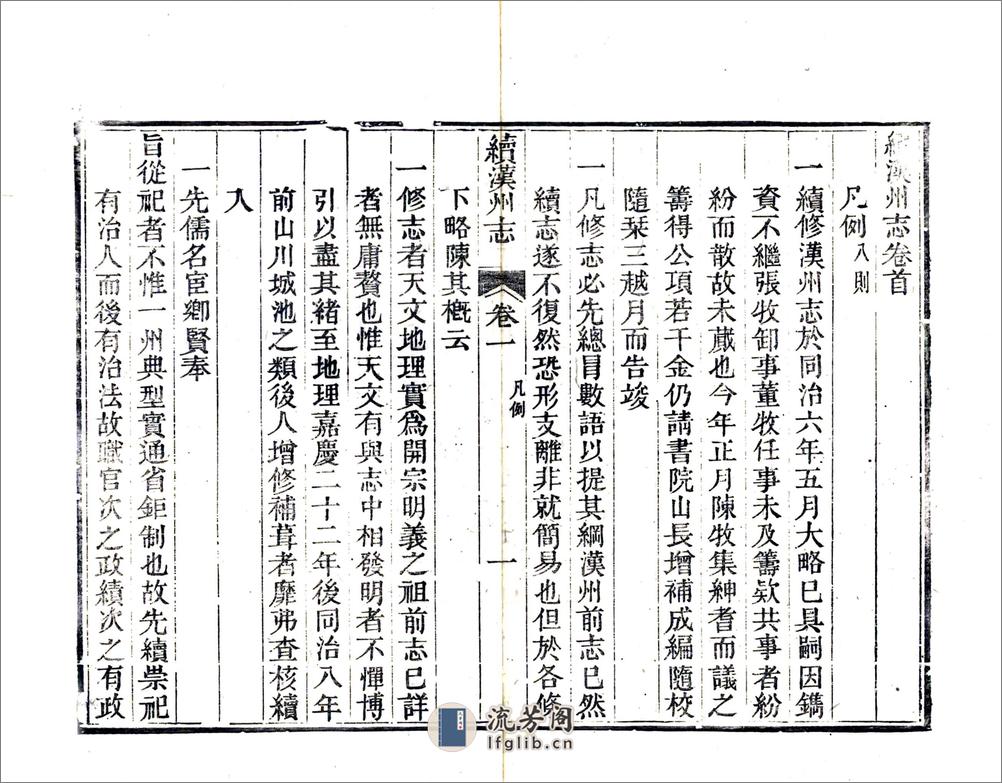 續漢州志卷首
凡例八則
一續修漢州志於同治六年五月大略已具嗣因鐫
資不繼張牧卸事董牧任事未及籌欵共事者紛
紛而散故未蕆也今年正月陳牧集紳耆而議之
籌得公項若干金仍請書院山長增補成編隨校
隨栞三越月而告竣
一凡修志必先總目數語以提其綱漢州前志已然
續志遂不復然恐形支離非就簡易也但於各條
續漢州志
卷一
凡例
一
下略陳其槪云
一修志者天文地理實爲開宗明義之祖前志已詳
者無庸贅也惟天文有與志中相發明者不憚博
引以盡其緒至地理嘉慶二十二年後同治八年
前山川城池之類後人增修補葺者靡弗查核續
入
一先儒名宦鄉賢奉
旨從祀者不惟一州典型實通省鉅制也故先續崇祀
有治人而後有治法故職官次之政績次之有政
流芳阁
lfglib.cn